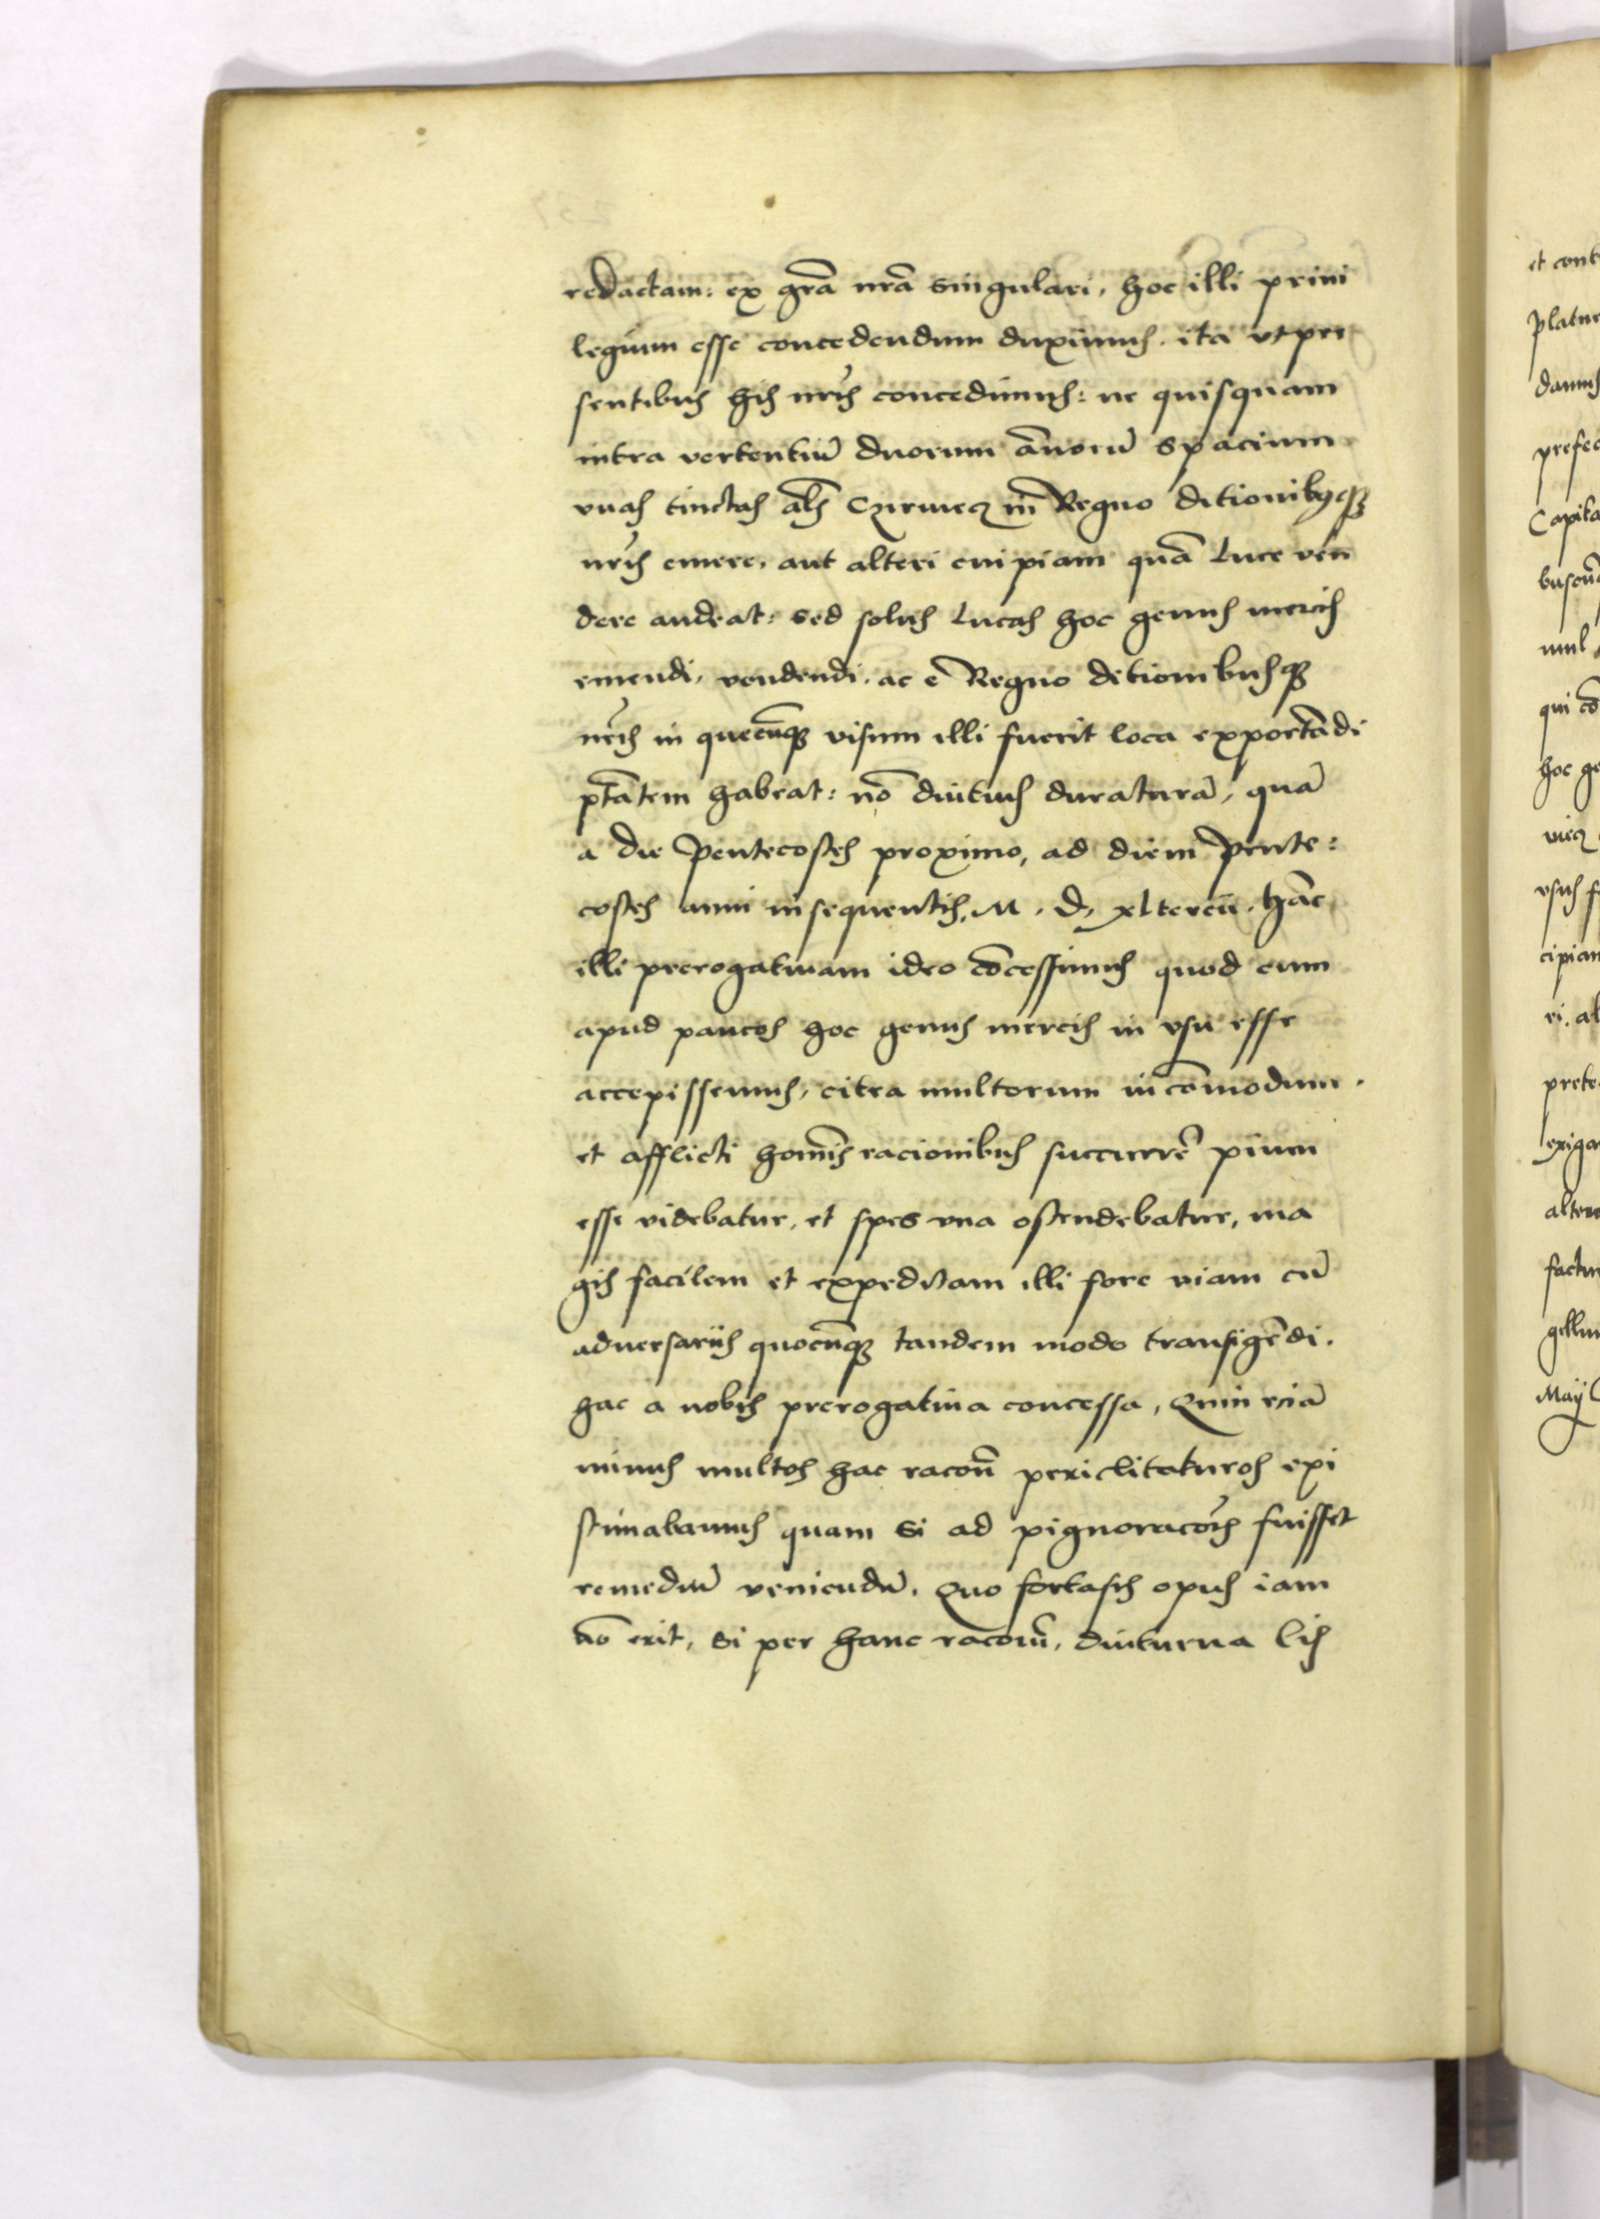 redactam: ex gr̃a nr̃a singulari, hoc illi priui
legium esse concedendum duximus. ita ut pre
sentibus his nr̃is concedimus: ne quisquam
intra vertentiũ duorum ãnorũ spacium
vuas tinctas als̃ Czirwecz in Regno ditionibusq3
nr̃is emere, aut alteri cuipiam quã Luce ven
dere audeat: sed solus Lucas hoc genus mercis
emendi, vendendi, ac e Regno ditionibusq3
nr̃is in quecũq3 visum illi fuerit loca exportãdi
ptãtem habeat: nõ diutius duraturã, quã
a die Pentecostes proximo, ad diem Pente:
costes anni insequentis, M. D. xltercii. hãc
illi prerogatiuam ideo cõcessimus quod cum
apud paucos hoc genus mercis in usu esse
accepissemus, citra multorum incõmodum.
et afflicti homĩs racionibus succurrẽ pium
esse videbatur, et spes una ostendebatur, ma
gis facilem et expeditam illi fore viam cũ
aduersariis quocũq3 tandem modo transigẽdi.
hac a nobis prerogatiua concessa, Quin eciã
minus multos hac racõn periclitaturos exi
stimabamus quam si ad pignoracõis fuisset
remediũ veniendũ. Quo fortassis opus iam
nõ erit, si per hanc racõm, diuturna lis
et cont
prefec
Capita
qui cõ
hoc ge
cipian
altera
May